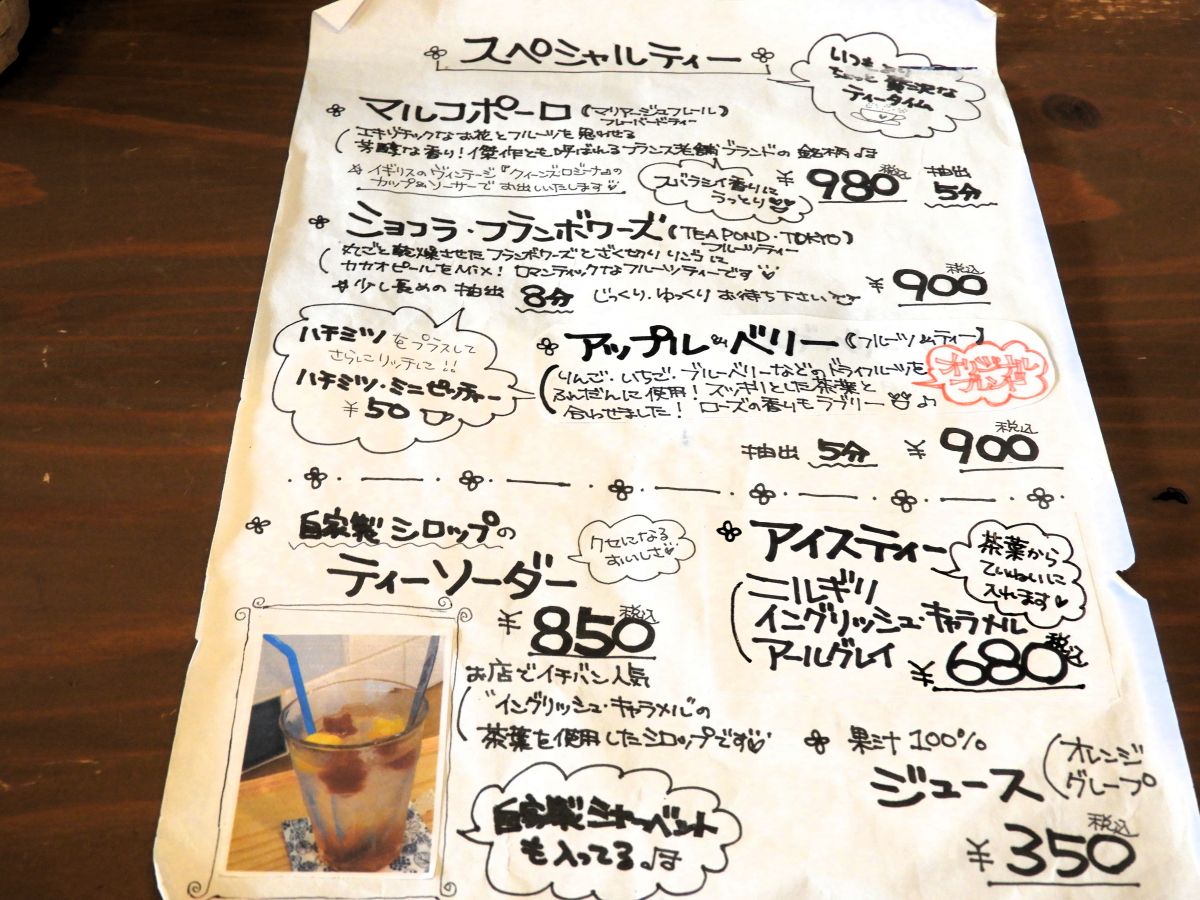 スペシャルティー
いつもより
ちょっと贅沢な
ティータイム
マルコポーロ (マリアージュフレール)
フレーバードティー
エキゾチックなお花とフルーツを思わせる
芳醇な香り!傑作とも呼ばれるフランス老舗ブランドの銘柄♪
イギリスのヴィンテージ『クィーンズロジーナ』の
カップ&ソーサーでお出しいたします
スバラシイ香りに
うっとり
税込
¥980 抽出
5分
ショコラ・フランボワーズ (TEA POND・TOKYO)
フルーツティー
丸ごと乾燥させたフランボワーズとざく切りりんごに
カカオピールをMix!ロマンティックなフルーツティーです
少し長めの抽出 8分 じっくり、ゆっくりお待ち下さい
税込
¥900
ハチミツをプラスして
さらにリッチに!!
ハチミツ・ミニピッチャー
¥50
アップル&ベリー (フルーツ&ティー)
オリジナル
ブレンド
りんご・いちご・ブルーベリーなどのドライフルーツを
ふんだんに使用!スッキリとした茶葉と
合わせました!ローズの香りもラブリー♪
税込
抽出 5分 ¥900
自家製シロップの
ティーソーダー
クセになる
おいしさ
税込
¥850
お店でイチバン人気
"イングリッシュ・キャラメル"の
茶葉を使用したシロップです
自家製シャーベット
も入ってる♪
アイスティー
茶葉から
ていねいに
入れます
ニルギリ
イングリッシュ・キャラメル
アールグレイ
税込
¥680
果汁100%
ジュース
オレンジ
グレープ
税込
¥350